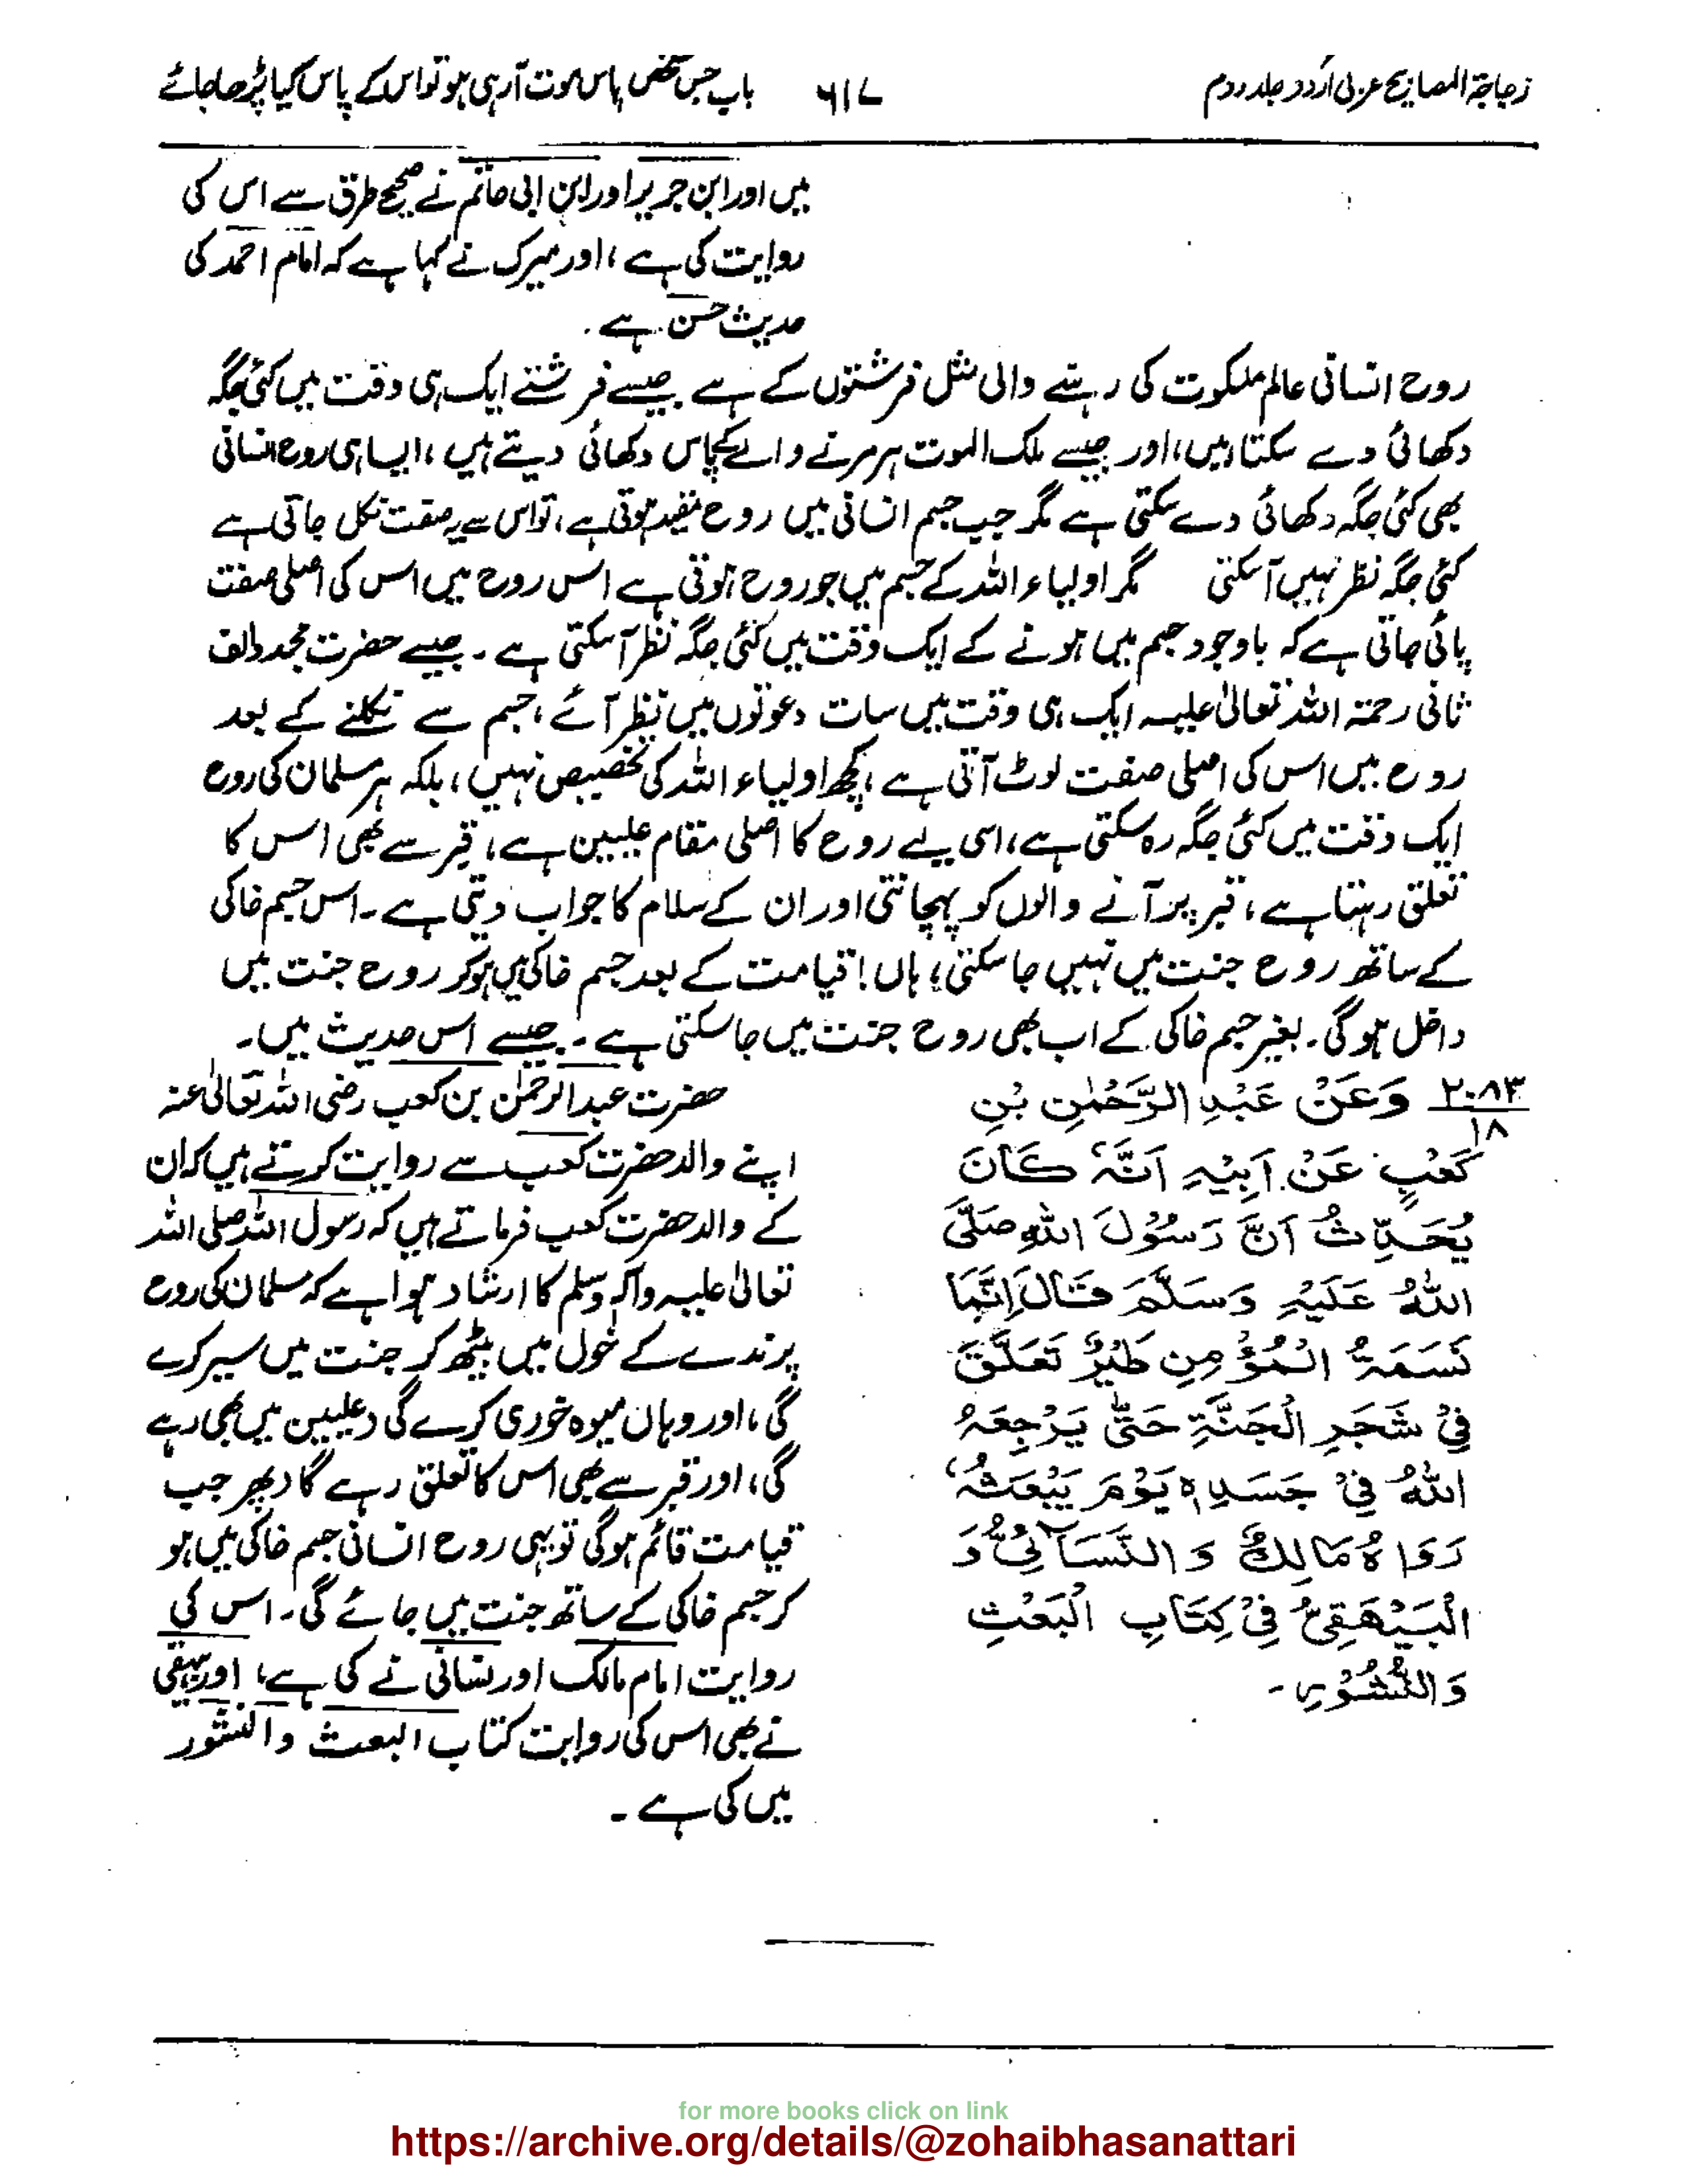 زجاجۃ المصابیح عربی اُردو جلد دوم ۶۱۷ باب جس شخص پاس موت آرہی ہو تو اس کے پاس کیا پڑھا جائے
ہیں اور ابن جریر اور ابن ابی حاتم نے صحیح طرق سے اس کی
روایت کی ہے ، اور میرک نے کہا ہے کہ امام احمد کی
حدیث حسن ہے ۔
روح انسانی عالم ملکوت کی رہنے والی مثل فرشتوں کے ہے جیسے فرشتے ایک ہی وقت میں کئی جگہ
دکھائی دے سکتا ہیں، اور جیسے ملک الموت ہر مرنے والے کے پاس دکھائی دیتے ہیں ، ایسا ہی روح انسانی
بھی کئی جگہ دکھائی دے سکتی ہے مگر جب جسم انسانی میں روح مقید ہوتی ہے، تو اس سے یہ صفت نکل جاتی ہے
کئی جگہ نظر نہیں آسکتی مگر اولیاء اللہ کے جسم میں جو روح ہوتی ہے اس روح میں اس کی اصلی صفت
پائی جاتی ہے کہ باوجود جسم میں ہونے کے ایک وقت میں کئی جگہ نظر آسکتی ہے ۔ جیسے حضرت مجدد الف
ثانی رحمۃ اللہ تعالیٰ علیہ ایک ہی وقت میں سات دعوتوں میں نظر آئے ، جسم سے نکلنے کے بعد
روح میں اس کی اصلی صفت لوٹ آتی ہے ، کچھ اولیاء اللہ کی تخصیص نہیں ، بلکہ ہر مسلمان کی روح
ایک وقت میں کئی جگہ رہ سکتی ہے، اسی لیے روح کا اصلی مقام علیین ہے، قبر سے بھی اس کا
تعلق رہتا ہے ، قبر پر آنے والوں کو پہچانتی اور ان کے سلام کا جواب دیتی ہے ۔ اس جسم خاکی
کے ساتھ روح جنت میں نہیں جا سکتی ، ہاں ! قیامت کے بعد جسم خاکی میں ہوکر روح جنت میں
داخل ہوگی ۔ بغیر جسم خاکی کے اب بھی روح جنت میں جا سکتی ہے ۔ جیسے اس حدیث میں ۔
۲۰۸۳
۱۸
وَعَنْ عَبْدِ الرَّحْمٰنِ بْنِ
كَعْبٍ عَنْ اَبِيْهِ اَنَّهٗ كَانَ
يُحَدِّثُ اَنَّ رَسُوْلَ اللهِ صَلَّى
اللهُ عَلَيْهِ وَسَلَّمَ قَالَ اِنَّمَا
نَسَمَةُ الْمُؤْمِنِ طَيْرٌ تَعَلَّقَ
فِيْ شَجَرِ الْجَنَّةِ حَتّٰى يَرْجِعَهُ
اللهُ فِيْ جَسَدِهٖ يَوْمَ يَبْعَثُهٗ
رَوَاهُ مَالِكٌ وَ النَّسَآئِيُّ وَ
الْبَيْهَقِيُّ فِيْ كِتَابِ الْبَعْثِ
وَ النُّشُوْرِ ۔
حضرت عبد الرحمٰن بن کعب رضی اللہ تعالیٰ عنہ
اپنے والد حضرت کعب سے روایت کرتے ہیں کہ ان
کے والد حضرت کعب فرماتے ہیں کہ رسول اللہ صلی اللہ
تعالیٰ علیہ وآلہ وسلم کا ارشاد ہوا ہے کہ مسلمان کی روح
پرندے کے خول میں بیٹھ کر جنت میں سیر کرے
گی ، اور وہاں میوہ خوری کرے گی (علیین میں بھی رہے
گی ، اور قبر سے بھی اس کا تعلق رہے گا) پھر جب
قیامت قائم ہوگی تو یہی روح انسانی جسم خاکی میں ہو
کر جسم خاکی کے ساتھ جنت میں جائے گی ۔ اس کی
روایت امام مالک اور نسائی نے کی ہے ، اور بیہقی
نے بھی اس کی روایت کتاب البعث والنشور
میں کی ہے ۔
for more books click on link
https://archive.org/details/@zohaibhasanattari